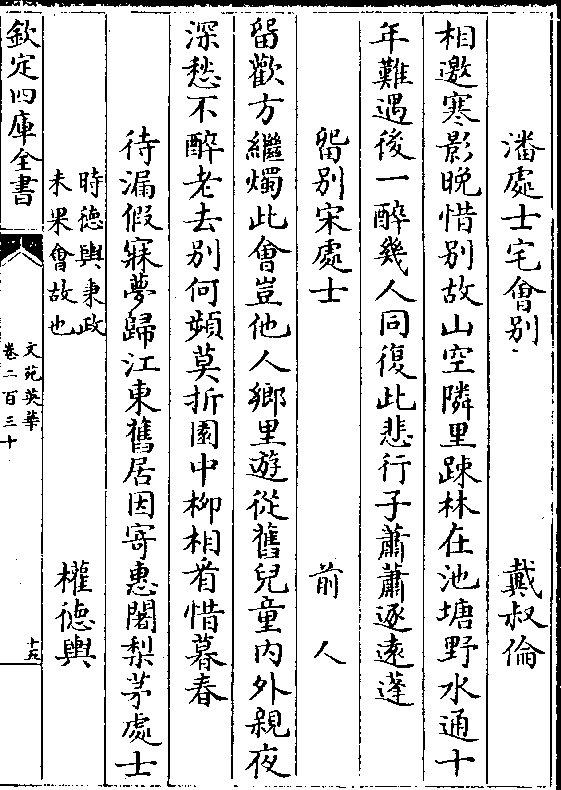 潘處士宅會别　戴叔倫
相邀寒影晚惜别故山空隣里踈林在池塘野水通十
年難遇後一醉幾人同復此悲行子蕭蕭逐遠蓬
留别宋處士　前人
留歡方繼燭此會豈他人鄉里遊從舊兒童内外親夜
深愁不醉老去别何頻莫折園中柳相看惜暮春
待漏假寐夢歸江東舊居因寄惠闍梨茅處士
時德輿秉政
未果會故也
權德輿
欽定四庫全書
文苑英華
卷二百三十
十五